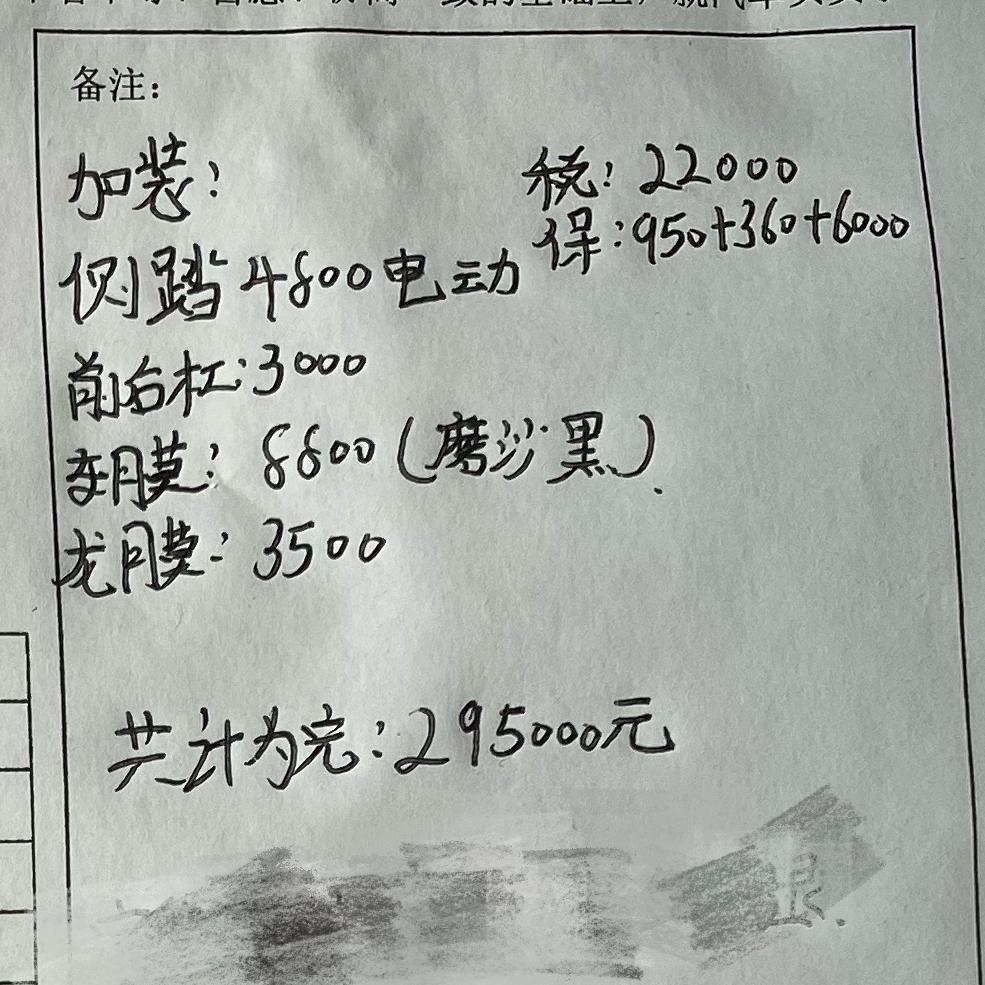 备注：
加装：
税：22000
保：950+360+6000
侧踏4800电动
前后杠：3000
车膜：8800（磨沙黑）
龙膜：3500
共计为完：295000元
退